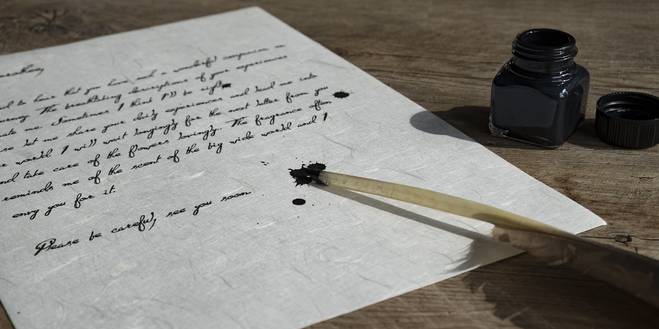 to hear that you have had a wonderful companion on
The breathtaking descriptions of your experiences
me. Sometimes I think I'll be right
let me share your daily experiences and send me
world I will wait longingly for the next letter from you
take care of the flowers lovingly. The fragrance often
reminds me of the scent of the big wide world and I
envy you for it.
Please be careful, see you soon.